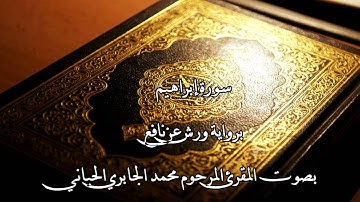 سورة إبراهيم
برواية ورش عن نافع
بصوت المقرئ المرحوم محمد الجابري الحياني